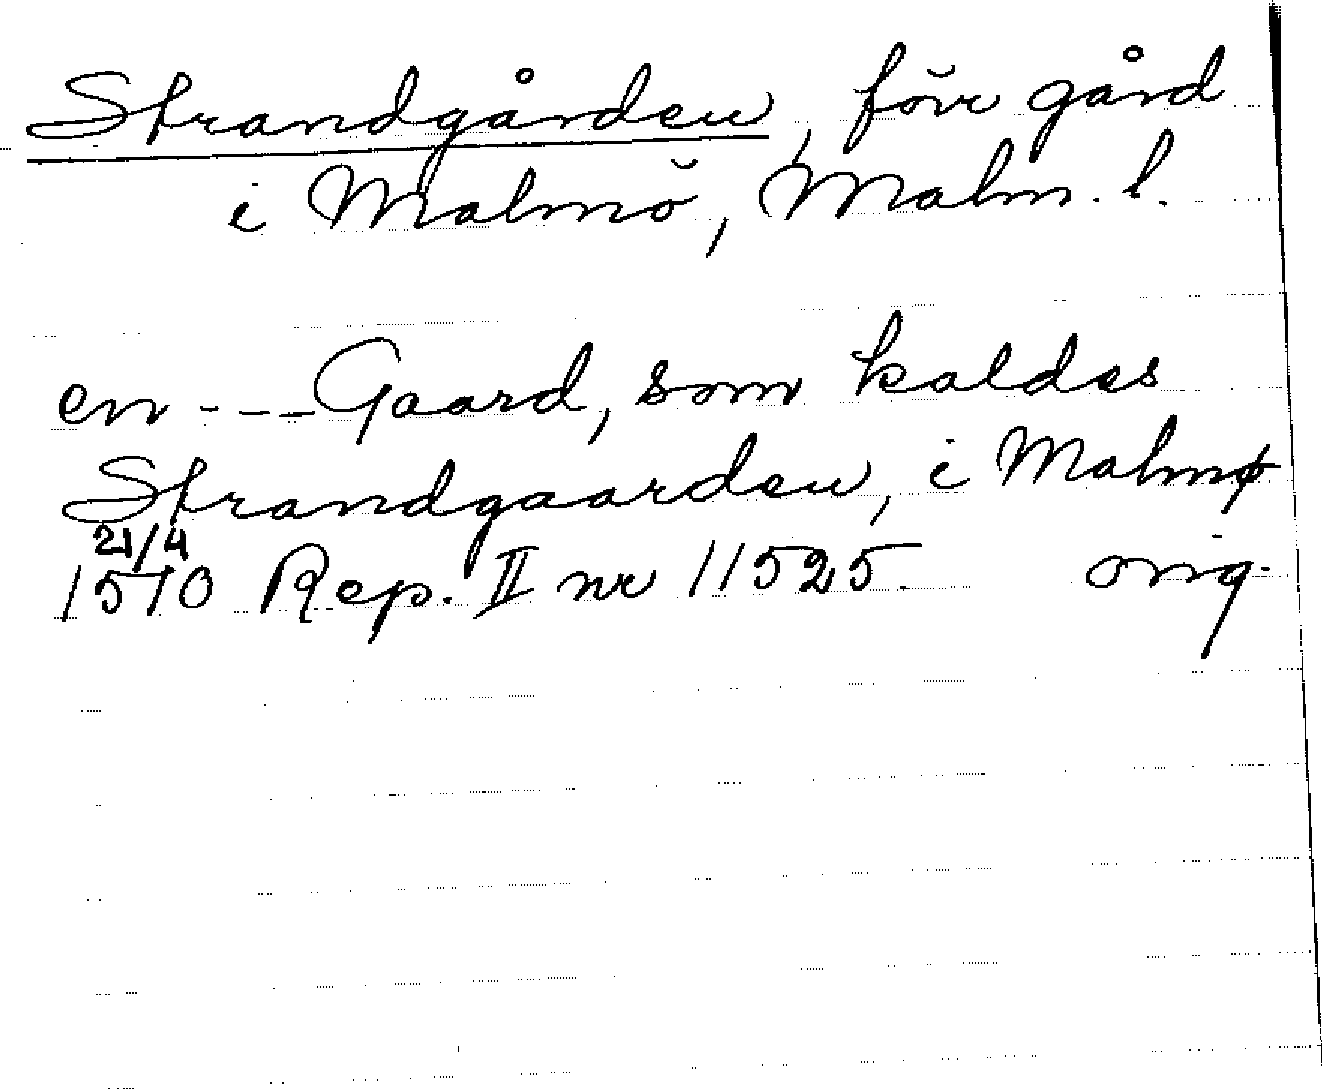 Strandgården, förr gård
i Malmö, Malm. l.
en --- Gaard, som kaldes
Strandgaarden, i Malmø
21/4
1510 Rep. II nr 11525. orig.